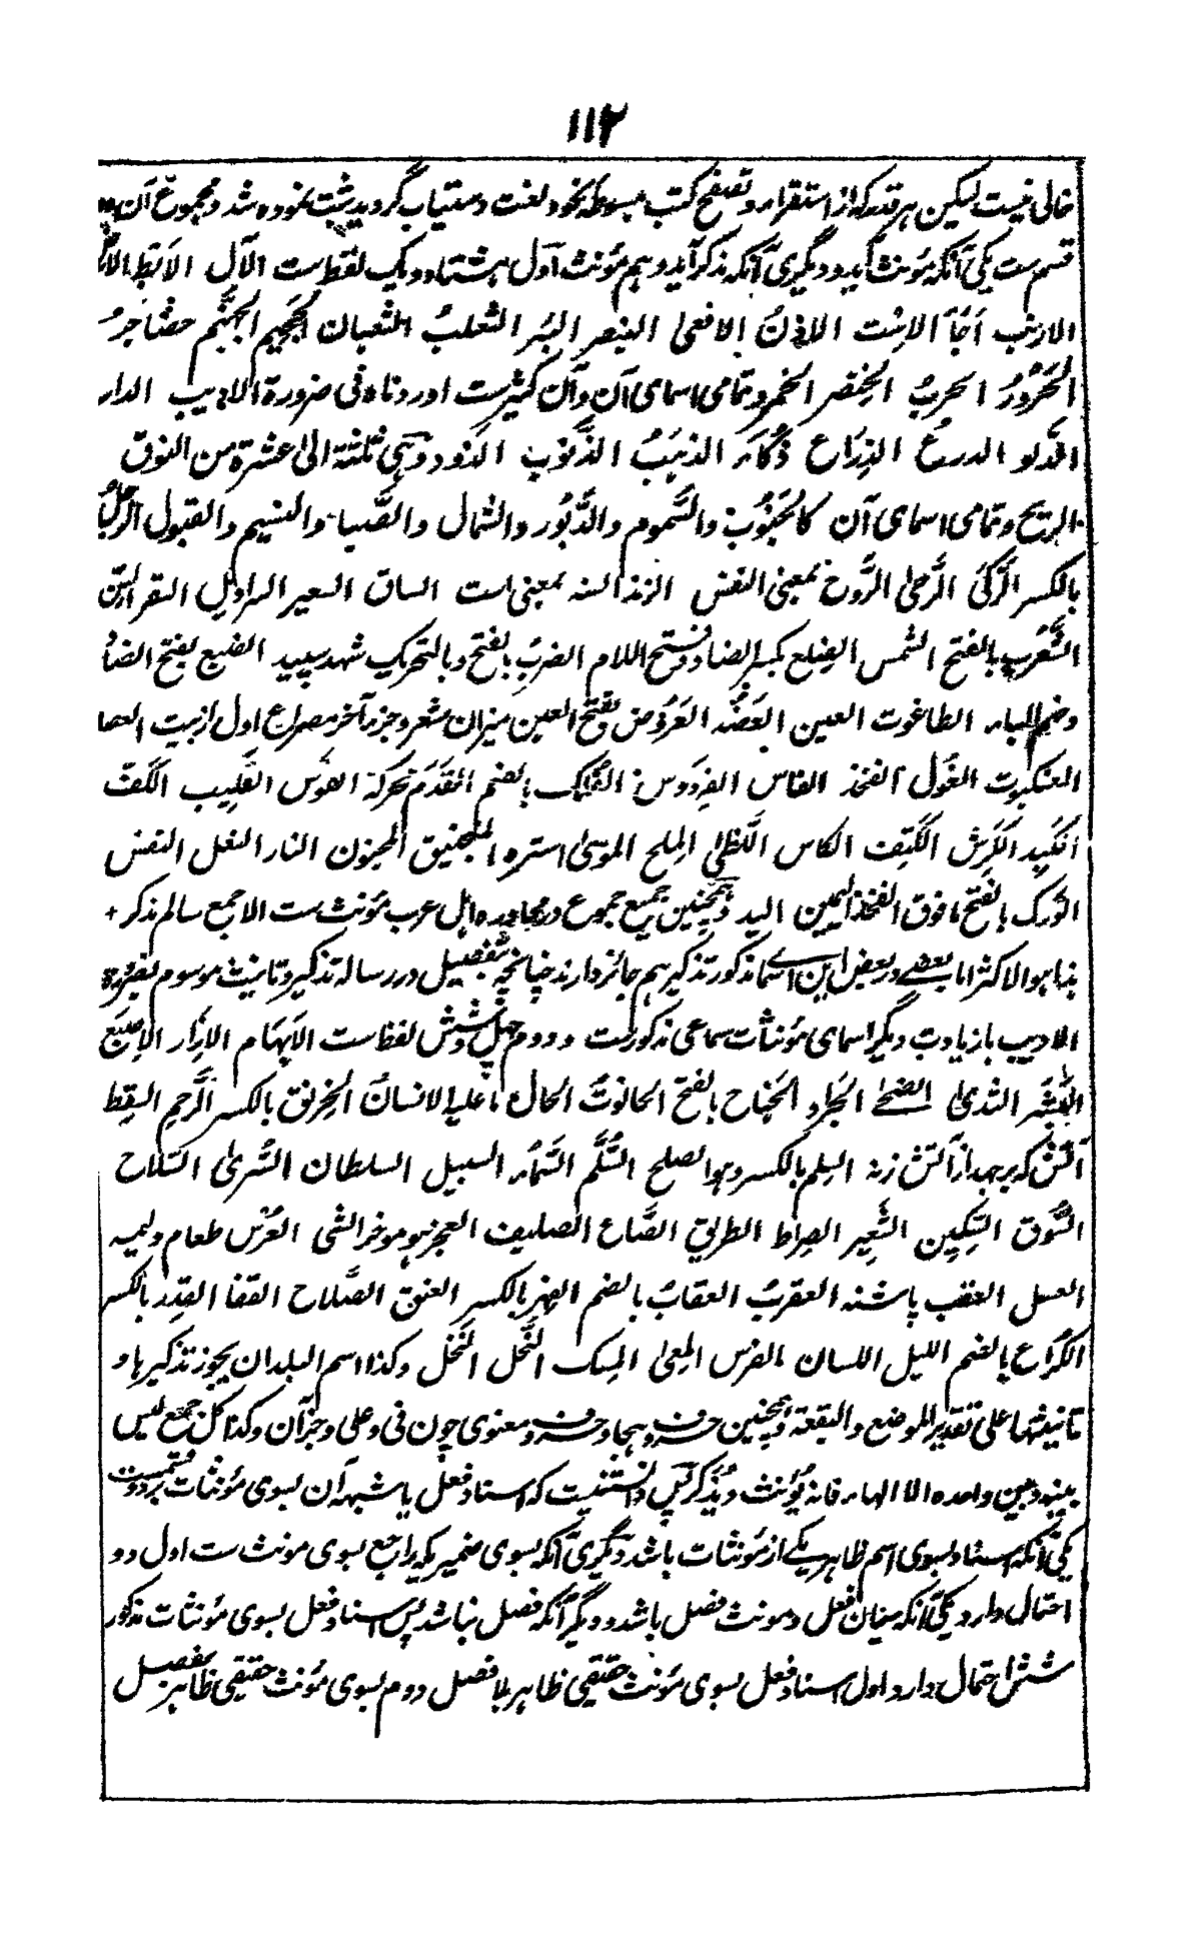 ۱۱۲
خالی نیست لیکن هر قدر که از استقراء و تصفح کتب مبسوطه نحو و لغت دستیاب گردید ثبت نموده شد و مجموع آن
قسم ست یکی آنکه مؤنث آید و دیگری آنکه مذکر آید و هم مؤنث اول هشتاد و یک لفظ ست الآل الابط
الارنب اَجَأ الاِسْت الاذنُ الافعیٰ البنصر البئر الثعلبُ الثعبان الجحیم الجهنم حضاجرُ
الحَرُورُ الحربُ الخِنصر الخمر و تمامی اسمای آن و آن کثیر ست اوردناه فی ضرورة الادیب الدار
الدلو الدرعُ الذِرَاع ذُکَاء الذهَبُ الذَّنُوب الذود وهی ثلثة الیٰ عشرة من النوق
الریح و تمامی اسمای آن کالجَنُوب والسَّموم والدَّبُور والشمال والصَّبا والنسیم والقبول الرِّجلُ
بالکسر الرَّکیُ الرَّحیٰ الرُّوح بمعنی النفس الزند السنه بمعنی ست الساق السعیر السراویل السقر
بالفتح الشمس الضِلع بکسر الضاد و فتح اللام الضربُ بالفتح و بالتحریک شهد سپید الضبع بفتح الضا
وضم الباء الطاغوت العین العَضُد العَرُوض بفتح العین میزان شعر و جزء آخر مصراع اول از بیت العصا
العنکبوت الغُول الفخذ الفاس الفِردَوس الفُلک بالضم القَدَم محرکة القوس القَلِیب الکَفّ
الکَبِد الکَرِش الکَتِف الکاس اللَّظیٰ المِلح الموسیٰ استره المنجنیق المنون النار النعل النفس
الوَرِک بالفتح مافوق الفخذ الیمین الید و همچنین جمیع جموع در محاوره اهل عرب مؤنث ست الا جمع سالم مذکر +
هذا هو الاکثر اما بعضے در بعض این اسما مذکور تذکیر هم جائز دارند چنانچه تفصیل در رساله تذکیر و تانیث موسوم بضرورة
الادیب با زیادت دیگر اسمای مؤنثات سماعی مذکور ست و دوم چهل و شش لفظ ست الاَبهَام الاِزَار الاِصبَع
البَشَر الثدیٰ الضحیٰ الجَراد الجَناح بالفتح الحانوتُ الحال ما علیه الانسانُ الخِرنق بالکسر الرَّحِم السِقط
آتش که برجهد از آتش زنه السِلم بالکسر و هو الصلح السُّلَّم السَّمَاء السبیل السلطان السُّریٰ السَلاح
السُّوق السِّکِین الشَّعِیر الصِراط الطریق الصَّاع الصلیف العجز هو موخر الشی العُرْس طعام ولیمه
العسل العقب پاشنه العقربُ العقابُ بالضم الفِهر بالکسر العنق الصَّلاح القفا القِدر بالکسر
الکُرَاع بالضم اللیل اللسان الفَرَس المِعیٰ المِسک النَّحل النَّخل وکذا اسم البلدان یجوز تذکیرها و
تانیثها علی تقدیر الموضع والبقعة و همچنین حروف هجا و حروف معنوی چون فی و علی و جز آن وکذا کل جمع لیس
بینه و بین واحده الا الهاء فانه یُؤنث و یُذَکر پس دانستنیست که اسناد فعل یا شبه آن بسوی مؤنثات بر دو قسمست
یکی آنکه اسناد بسوی اسم ظاهر یکے از مؤنثات باشد دیگری آنکه بسوی ضمیر یکه راجع بسوی مونث ست اول دو
احتمال دارد یکی آنکه میان فعل و مونث فصل باشد و دیگر آنکه فصل نباشد پس اسناد فعل بسوی مؤنثات مذکور
شش احتمال دارد اول اسناد فعل بسوی مؤنث حقیقی ظاهر بلا فصل دوم بسوی مؤنث حقیقی ظاهر بفصل